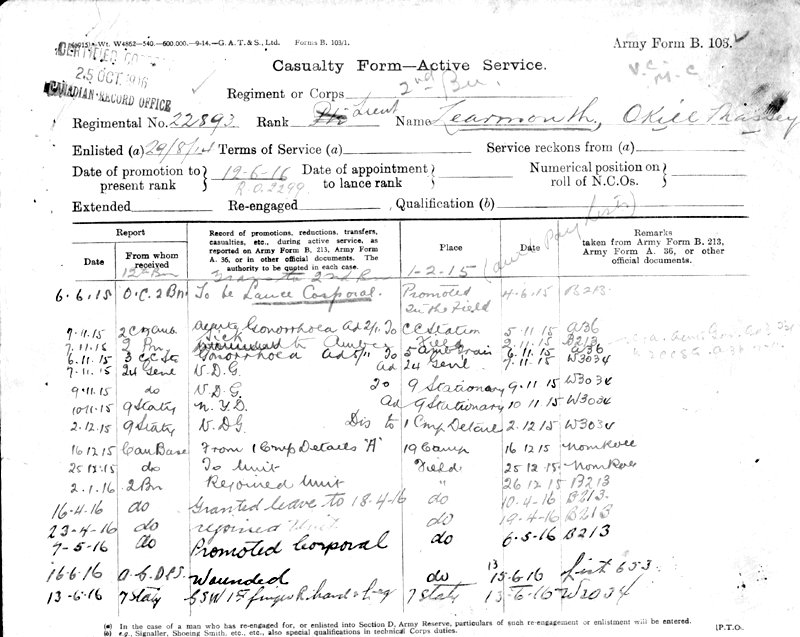 (6915) Wt. W4862—540.—600,000.—9-14.—G. A. T. & S., Ltd. Forms B. 103/1.
Army Form B. 103.
CERTIFIED
25 OCT 1916
CANADIAN RECORD OFFICE
Casualty Form—Active Service.
V.C.
M.C
Regiment or Corps 2nd Bn.
Regimental No. 22893 Rank Lieut Name Learmonth, OKill Massey
Enlisted (a) 29/8/14 Terms of Service (a) Service reckons from (a)
Date of promotion to present rank } 12-6-16 Date of appointment to lance rank } Numerical position on roll of N.C.Os. }
R.O. 2299
Extended Re-engaged Qualification (b)
Report Record of promotions, reductions, transfers, casualties, etc., during active service, as reported on Army Form B. 213, Army Form A. 36, or in other official documents. The authority to be quoted in each case. Place Date Remarks taken from Army Form B. 213, Army Form A. 36, or other official documents.
Date From whom received
12th Bn 1-2-15
6.6.15 O.C. 2 Bn To be Lance Corporal. Promoted in the Field 4.6.15 B213
7.11.15 Gonorrhoea Ad 2/11 To CC Station 5.11.15 A36
7.11.15 2 Bn Sick to Field 2.11.15 B213
6.11.15 3 CC Stn Gonorrhoea Ad 5/11 To 5 Amb Train 6.11.15 A36
7.11.15 24 Genl V.D.G. Ad 24 Genl 7.11.15 W3034
9.11.15 do V.D.G. To 9 Stationary 9.11.15 W3034
10.11.15 9 Staty N.Y.D. Ad 9 Stationary 10.11.15 W3034
2.12.15 9 Staty V.D.G Dis to 1 Cmp Detail 2.12.15 W3034
16 12 15 Can Base From 1 Cmp Details "A" 19 Camp 16 12 15 Nom Roll
25.12.15 do To Unit Field 25 12 15 Nom Roll
2.1.16 2 Bn Rejoined Unit " 26 12 15 B213
16-4-16 do Granted leave to 18-4-16 do 10-4-16 B213
23-4-16 do rejoined Unit do 19-4-16 B213
7-5-16 do Promoted Corporal do 6-5-16 B213
16.6.16 Wounded do 13 15-6-16 List 653
13-6-16 7 Staty GSW 1st finger R. hand & Leg 7 Staty 13-6-16 W3034
(a) In the case of a man who has re-engaged for, or enlisted into Section D, Army Reserve, particulars of such re-engagement or enlistment will be entered.
(b) e.g., Signaller, Shoeing Smith, etc., etc., also special qualifications in technical Corps duties. [P.T.O.